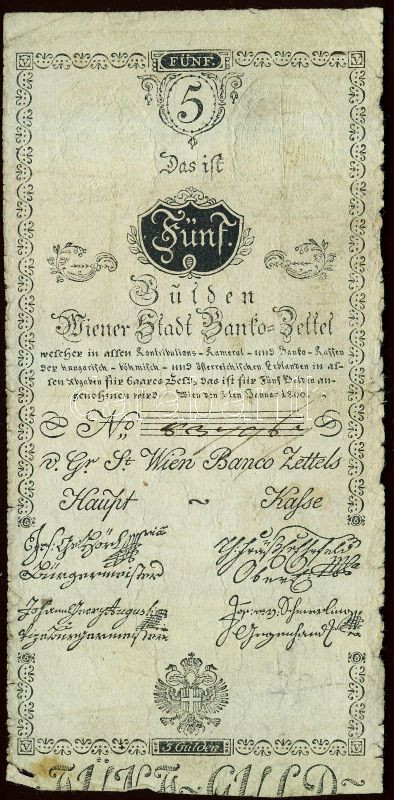 FÜNF.
5
Das ist
Fünf.
Gulden
Wiener Stadt Banko-Zettel
welcher in allen Kontributions-Kameral-und Banko-Kassen
der hungarisch-böhmisch-und österreichischen Erblanden in al-
len Abgaben für baares Geld, das ist für Fünf Gulden an-
genohmen wird. Wien den 1ten Januar 1800.
No
v. Gr St Wien Banco Zettels
Haupt ~ Kasse
Bürgermeister
Johann Georg Augusti
Vizebürgermeister
Gegenhandl
5 Gulden.
FÜNF GULD